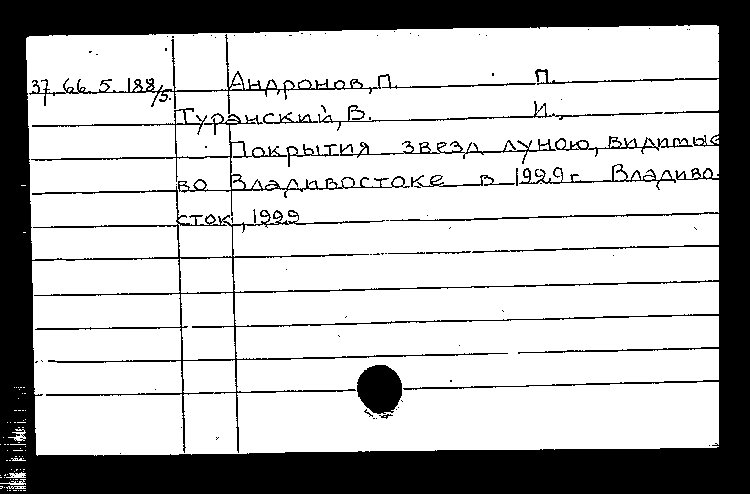 37. 66. 5. 188/5. Андронов, П. П.
Туранский, В. И.,
Покрытия звезд луною, видимые
во Владивостоке в 1929 г. Владиво-
сток, 1929